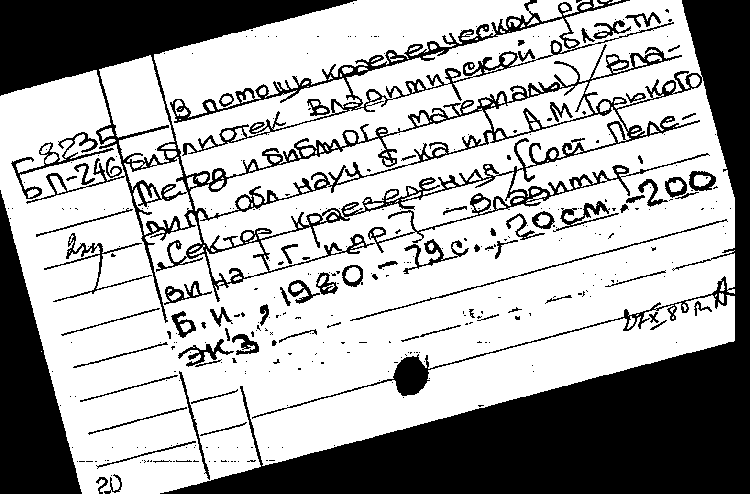 В помощь краеведческой
Б 8235
БП-246
2 эк.
библиотек Владимирской области:
(Метод. и библиогр. материалы) / Вла-
дим. обл. науч. б-ка им. А.М. Горького
. Сектор краеведения; [Сост. Пеле-
вина Т.Г. и др.]. - Владимир:
Б.и., 1980. - 79 с.; 20 см. - 200
экз.
80
20